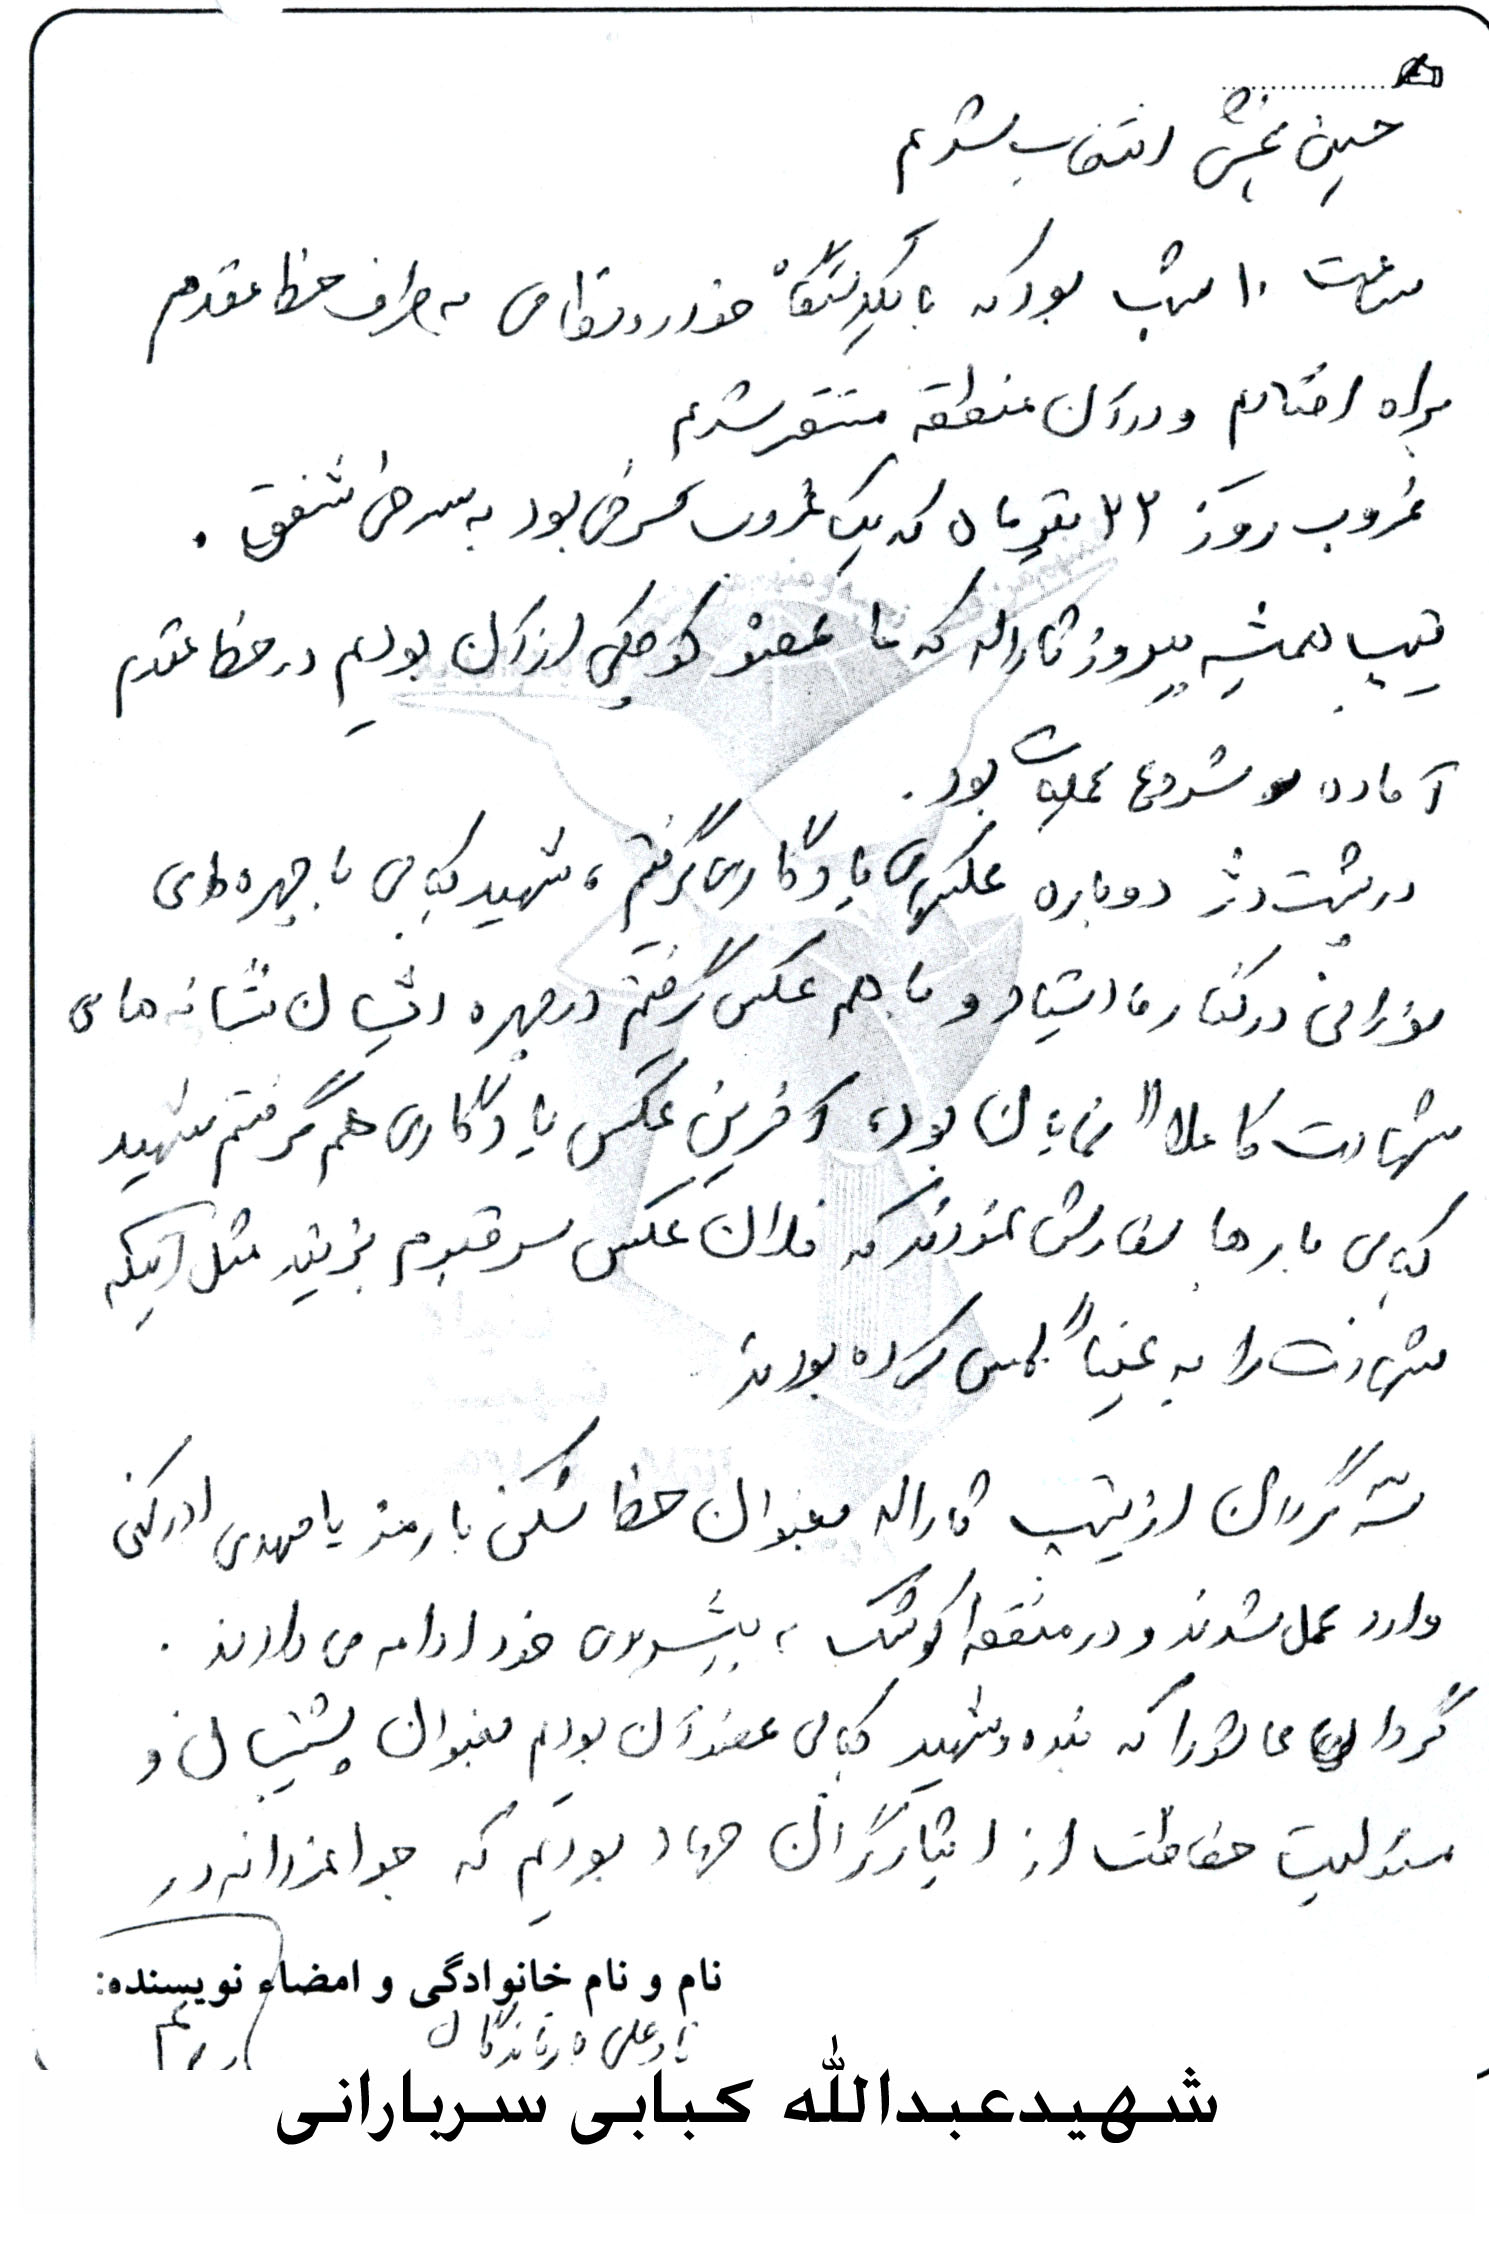 حسین بخش انتخاب شدیم
ساعت ۱۰ شب بود که با یکدستگاه خودرو نظامی به طرف خط مقدم
براه افتادیم و در آن منطقه مستقر شدیم
غروب روز ۲۲ تیرماه که یک غروب سرخی بود به سرخی شفق .
تیپ همیشه پیروز ثاراله که ما عضو کوچکی از آن بودیم در خط مقدم
آماده شروع عملیات بود .
در پشت دژ دوباره عکسهای یادگاری گرفتم ، شهید کبابی با چهره‌ای
نورانی در کنار ما ایستاد و با هم عکس گرفتم در چهره ایشان نشانه‌های
شهادت کاملاً نمایان بود، آخرین عکس یادگاری هم گرفتم شهید
کبابی بارها سفارش نمودند که فلان عکس سر قبرم بزنید مثل اینکه
شهادت را به عیناً لمس کرده بودند
سه گردان از تیپ ثاراله بعنوان خط شکن با رمز یا مهدی ادرکنی
وارد عمل شدند و در منطقه کوشک به پیشروی خود ادامه می دادند .
گردان عاشورا که بنده و شهید کبابی عضو آن بودیم بعنوان پشتیبان و
مسئولیت حفاظت از ایثارگران جهاد بودیم که جوانمردانه در
نام و نام خانوادگی و امضاء نویسنده:
نادعلی
شهید عبدالله کبابی سریارانی